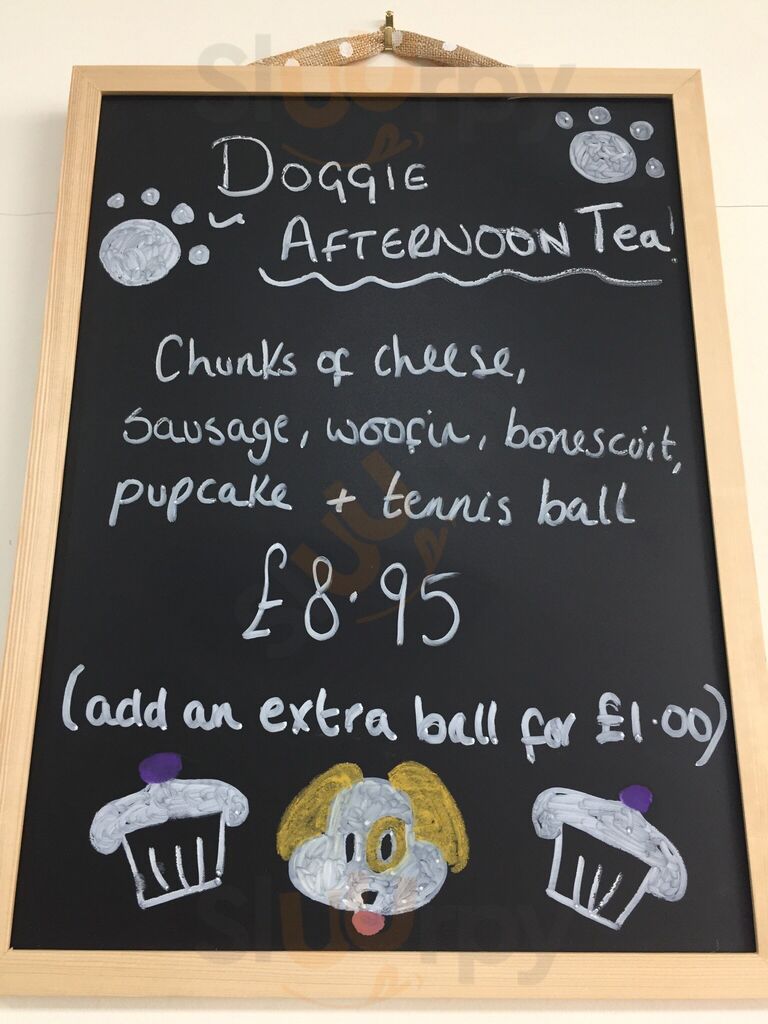 Sluurpy
DOGGIE
AFTERNOON Tea!
Chunks of cheese,
sausage, woofin, bonescuit,
pupcake + tennis ball
£8.95
(add an extra ball for £1.00)
Sluurpy